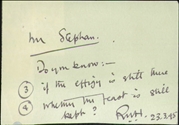 Mr Stephan.
Do you know:—
③ if the effigy is still here
④ whether the feast is still
kept?
23.2.35